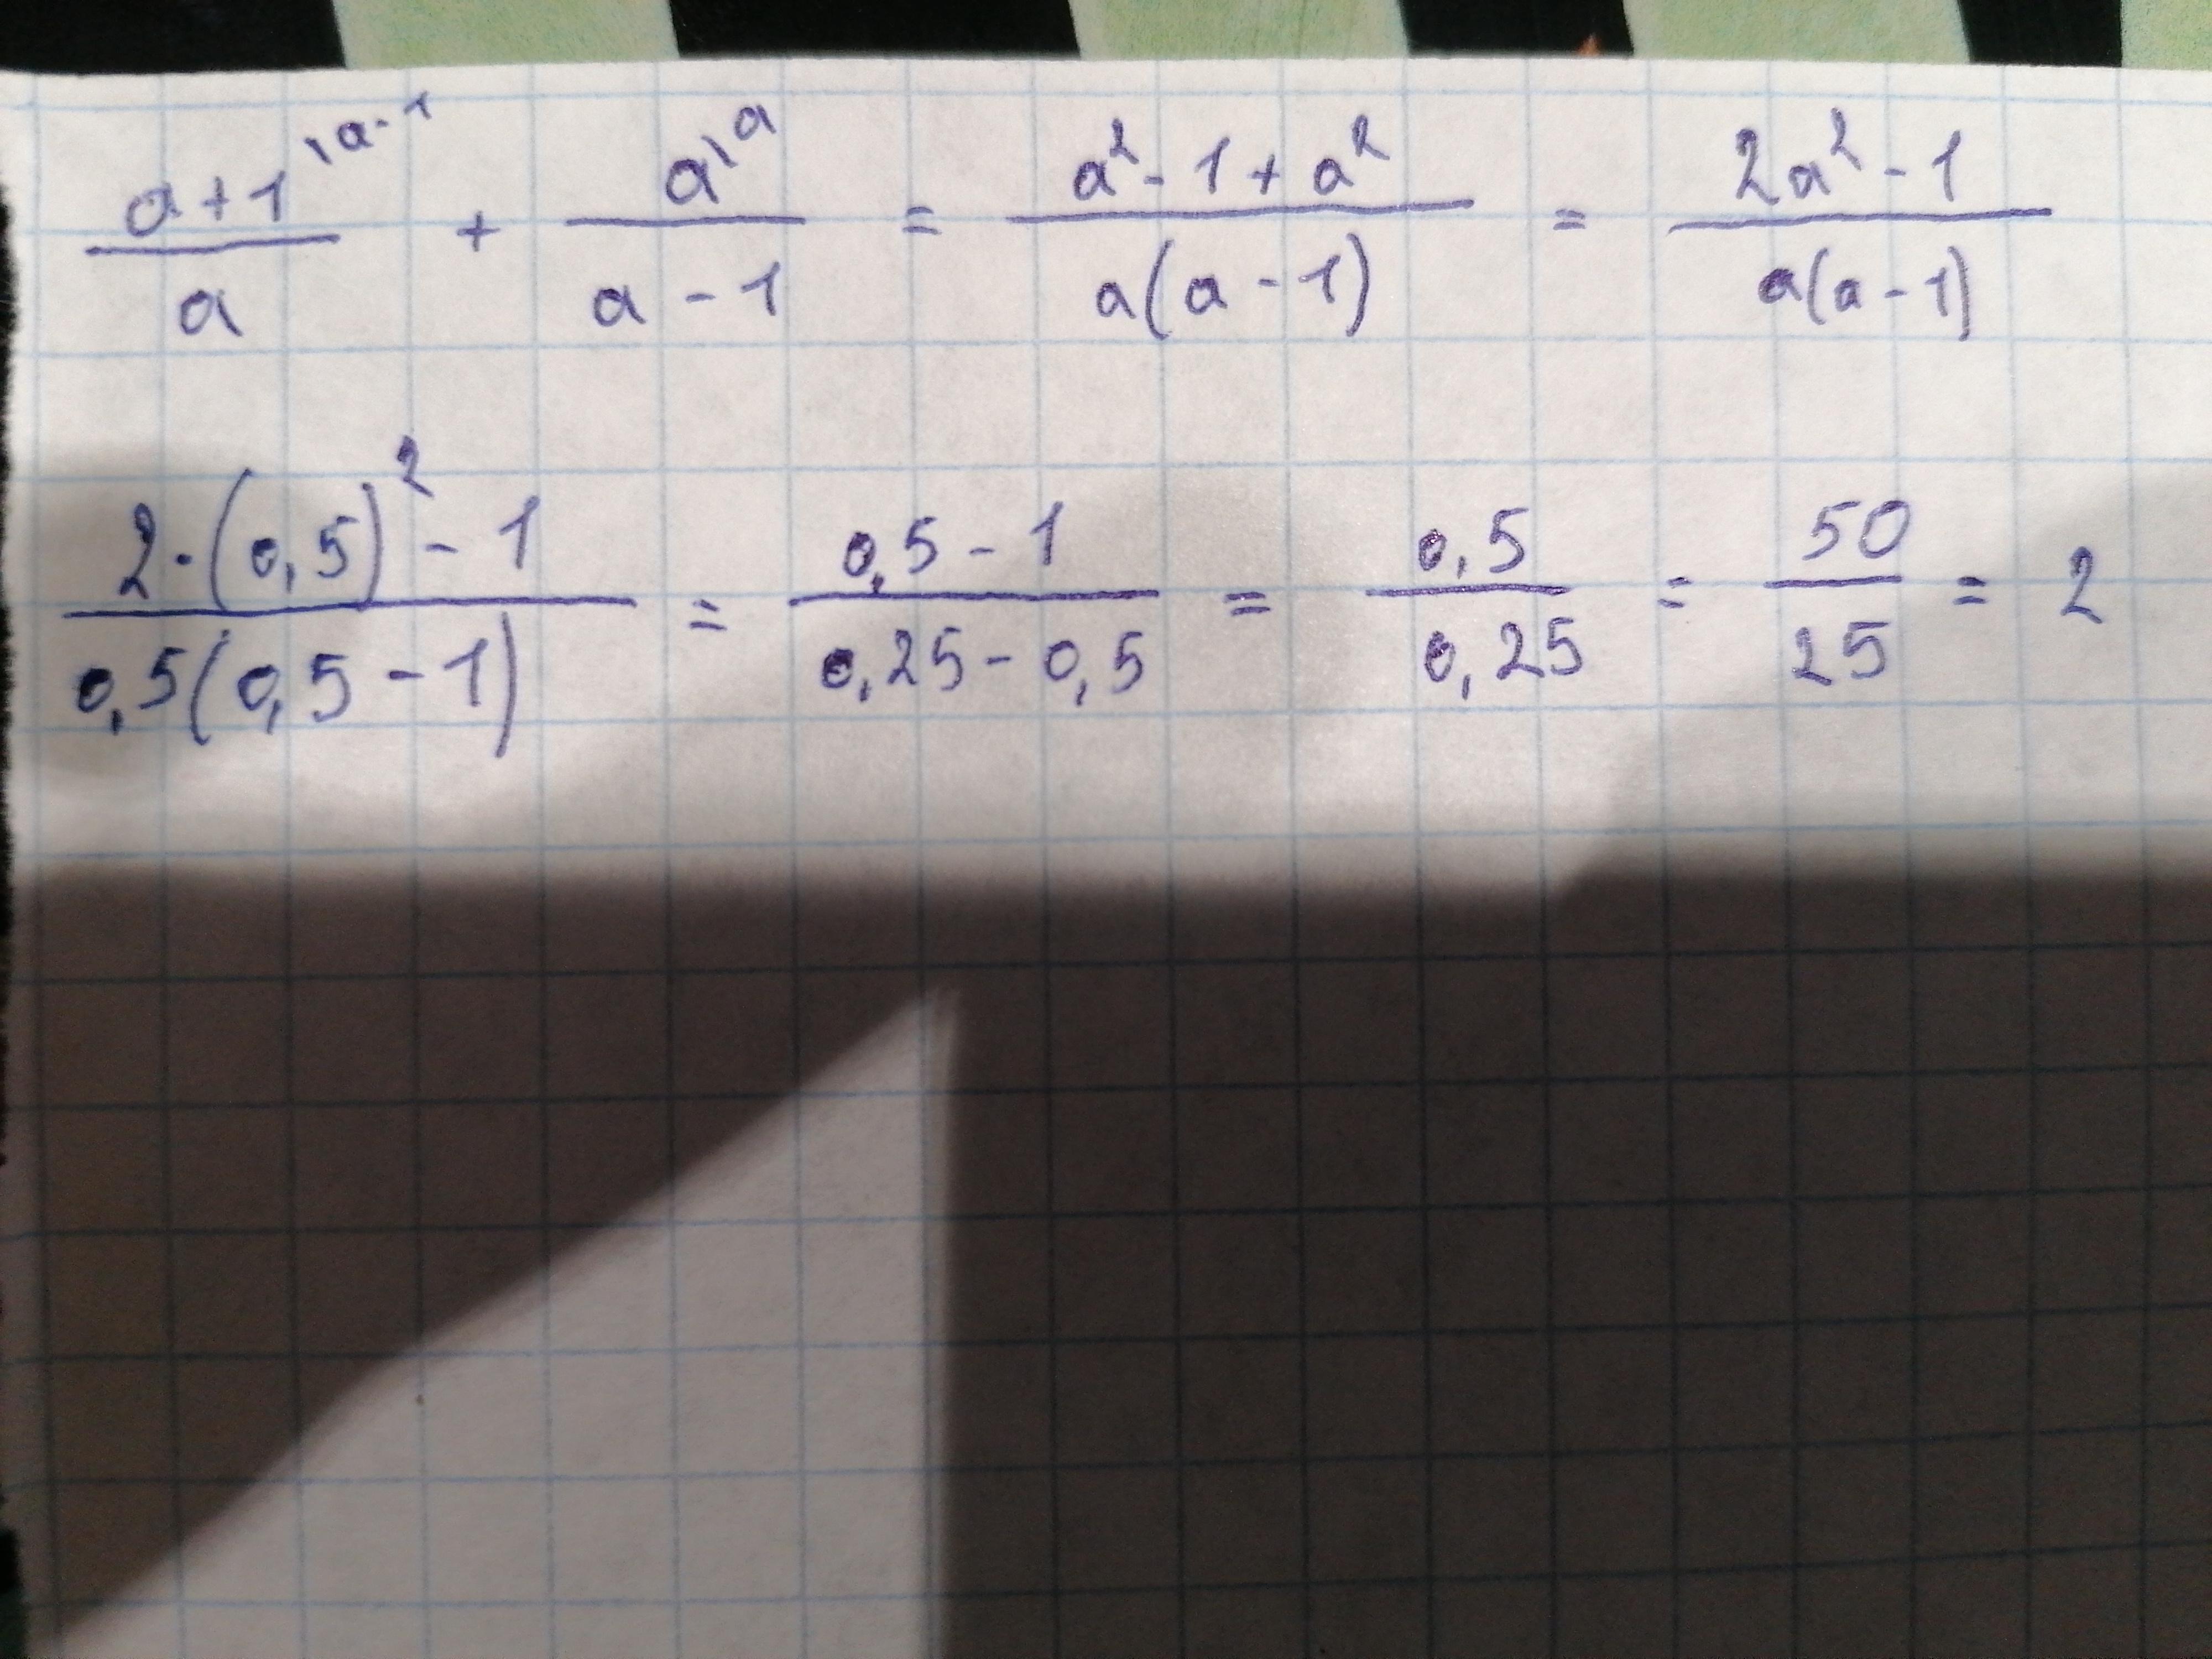 (a+1)/a ^\a-1 + a^\a/(a-1) = (a²-1+a²)/(a(a-1)) = (2a²-1)/(a(a-1))
(2·(0,5)²-1)/(0,5(0,5-1)) = (0,5-1)/(0,25-0,5) = 0,5/0,25 = 50/25 = 2